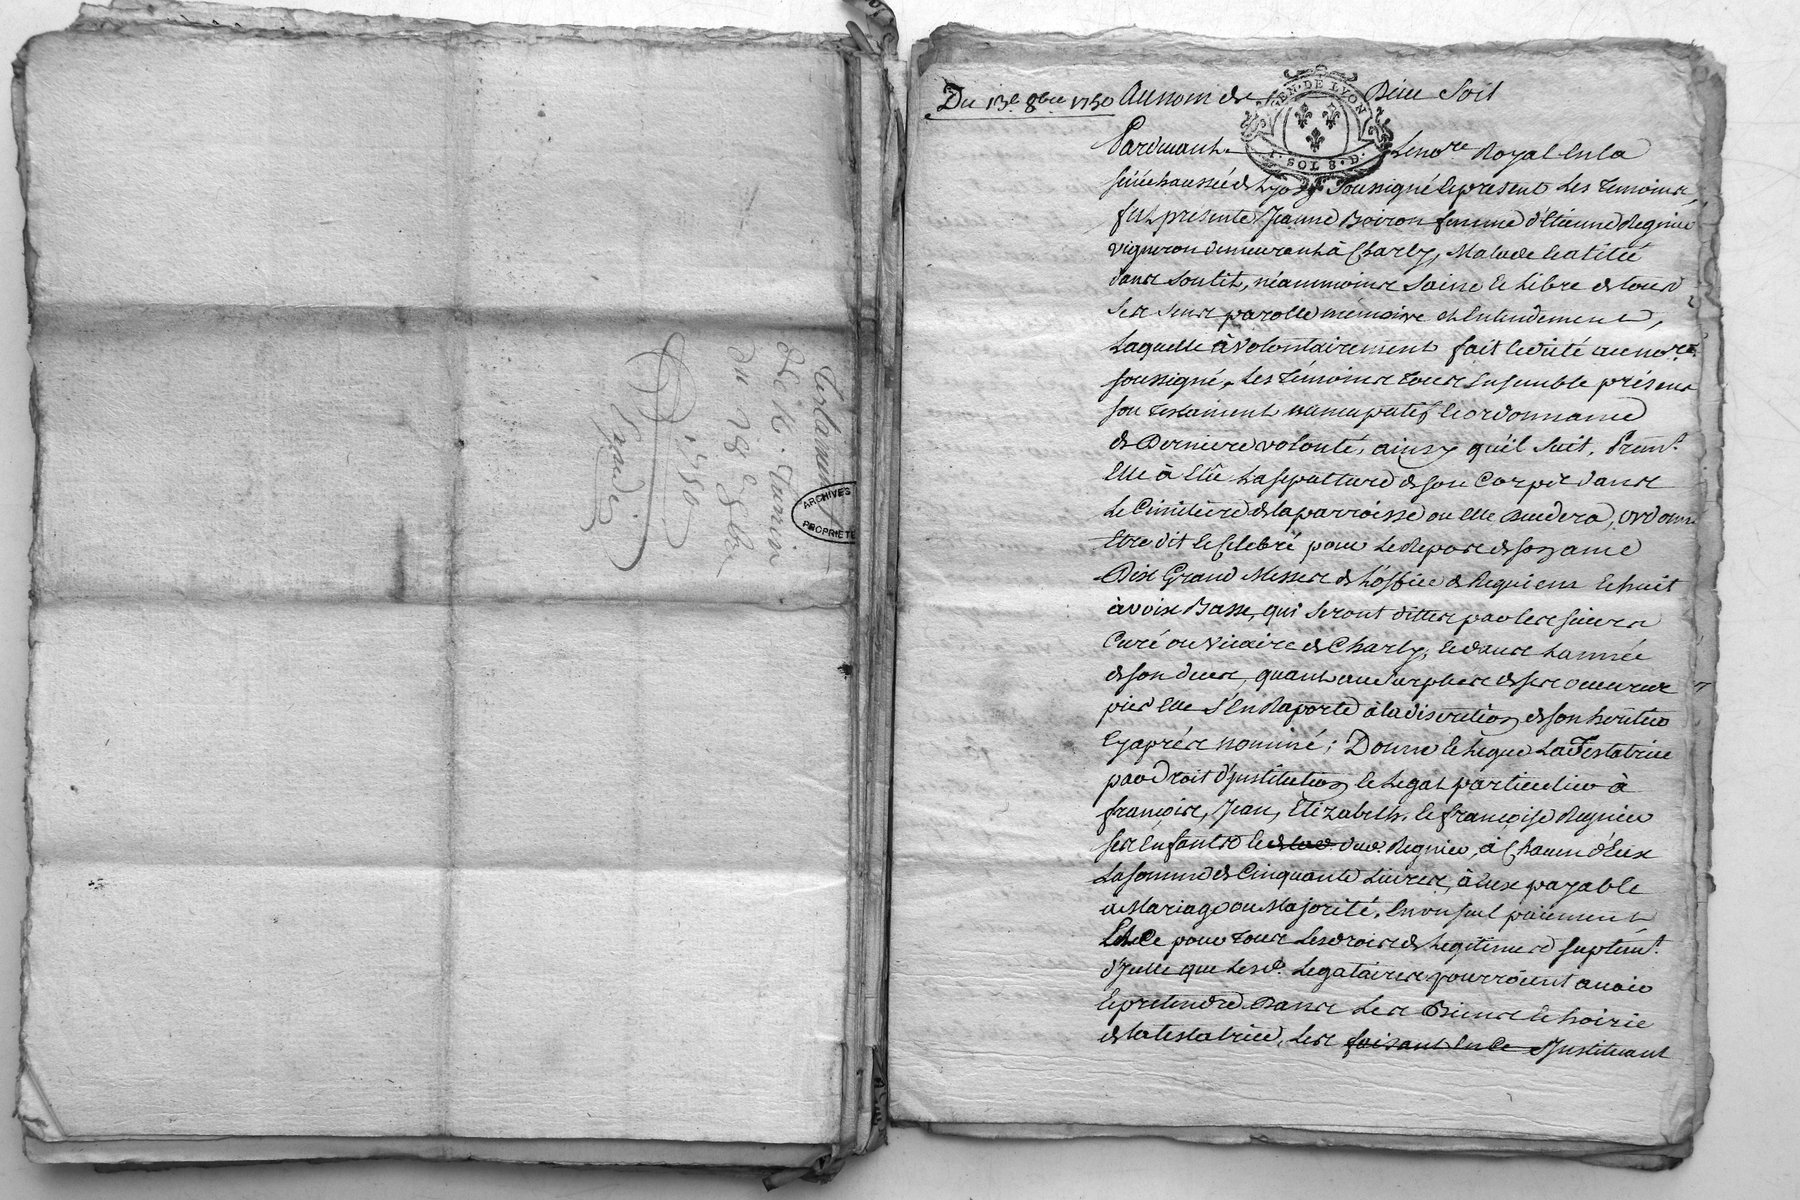 Testament
de M. Tamin
du 18e 8bre
1750
ARCHIVES
PROPRIETE
Du 13e 8bre 1750 Au nom de Dieu Soit
GEN. DE LYON
I. SOL 8. D.
Pardevant Le nore Royal en la
sénéchaussée de Lyon Soussigné et présent les témoins
fut présente Jeanne Boiron femme d'Etienne Regnier
vigneron demeurant à Charly, Malade et alitée
dans son lit, néammoins saine et libre de tous
ses sens parolle mémoire et entendement,
Laquelle à volontairement fait et dicté au nore
soussigné, les témoins tous ensemble présens
son testament nuncupatif et ordonnance
de Derniere volonté, ainsy qu'il suit, Premt
Elle à Elû La sepulture de son Corps dans
Le Cimitière de la parroisse ou elle decedera, ordonne
Etre dit et Celebré pour le Repos de son ame
Dix Grand Messes de L'office de Requiem et huit
à voix Basse, qui seront dittes par les sieurs
Curé ou Vicaire de Charly, et dans L'année
de son deces, quant au surplus de ses oeuvres
pies Elle s'En Raporte à la discretion de son heritier
Cy après nommé; Donne et Legue La Testatrice
par Droit d'institution et Legat particulier à
françois, Jean, Elizabeth, et françoise Regnier
ses Enfants et dud. Regnier, à Chacun d'Eux
La somme de Cinquante Livres, à Eux payable
à Mariage ou Majorité, En un seul paiement
Et Ce pour tous Les droits de Legitime et suplemt
d'Icelle que Lesd. Legataires pourroient avoir
et pretendre Dans Les Biens et hoirie
de la testatrice, Les faisant en Ce Instituant